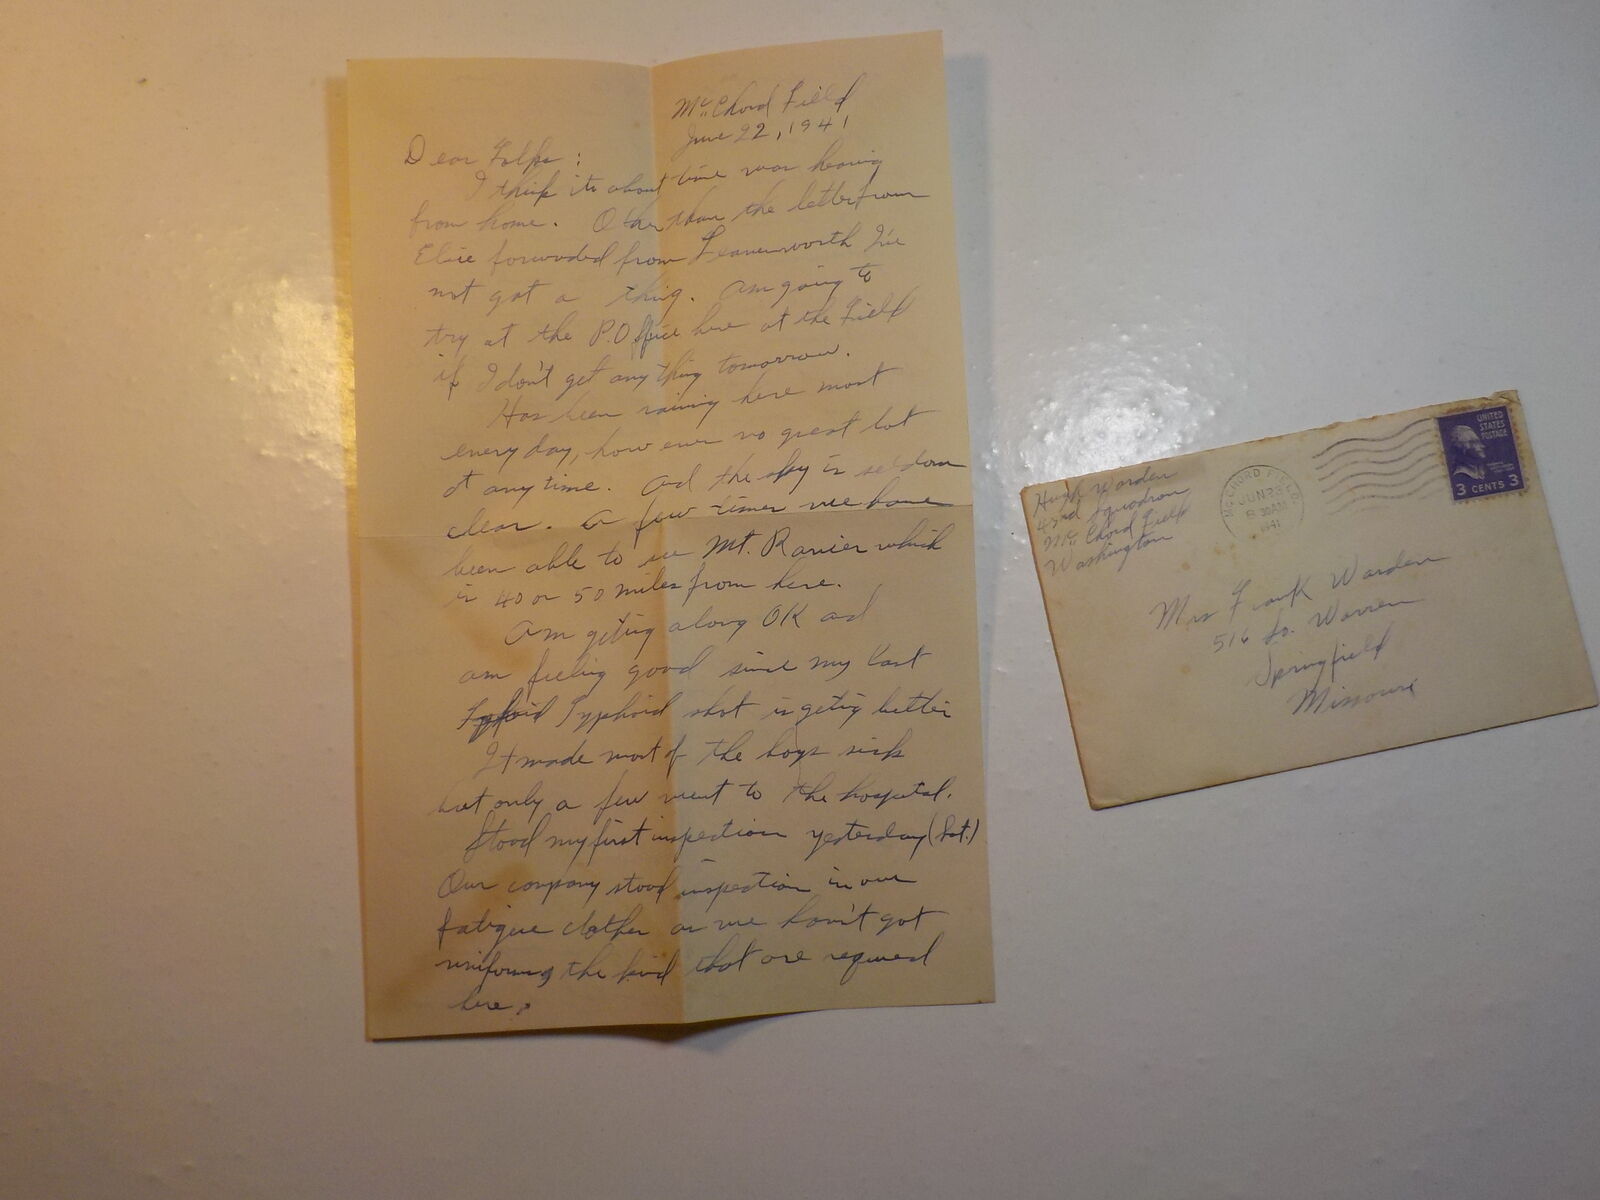 McChord Field
June 22, 1941
Dear Folks:
I think its about time was hearing
from home. Other than the letter from
Elsie forwarded from Leavenworth I've
not got a thing. Am going to
try at the P.Office here at the Field
if I don't get any thing tomorrow.
Has been raining here most
every day, how ever no great lot
at any time. And the sky is seldom
clear. A few times we have
been able to see Mt. Ranier which
is 40 or 50 miles from here.
Am geting along OK and
am feeling good since my last
Typhoid shot is geting better
It made most of the boys sick
but only a few went to the hospital.
Stood my first inspection yesterday (Sat.)
Our company stood inspection in our
fatigue clothes as we haven't got
uniforms the kind that are required
here.
Hugh Warden
43rd Squadron
McChord Field
Washington
McCHORD FIELD
JUN 23
8 30 AM
1941
UNITED
STATES
POSTAGE
3 CENTS 3
Mrs Frank Warden
516 So. Warren
Springfield
Missouri